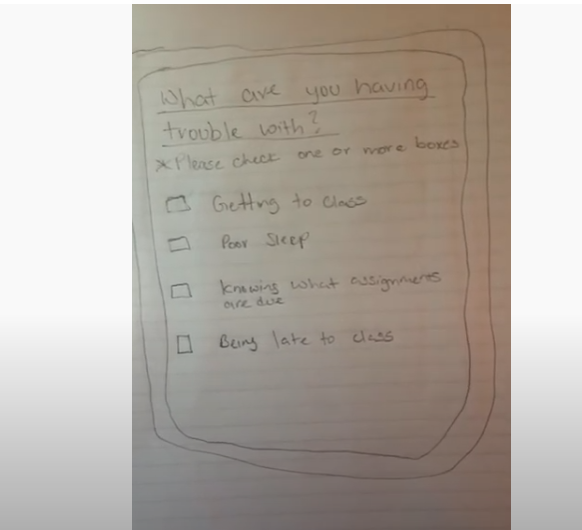 What are you having
trouble with?
*Please check one or more boxes
Getting to class
Poor Sleep
Knowing what assignments
are due
Being late to class